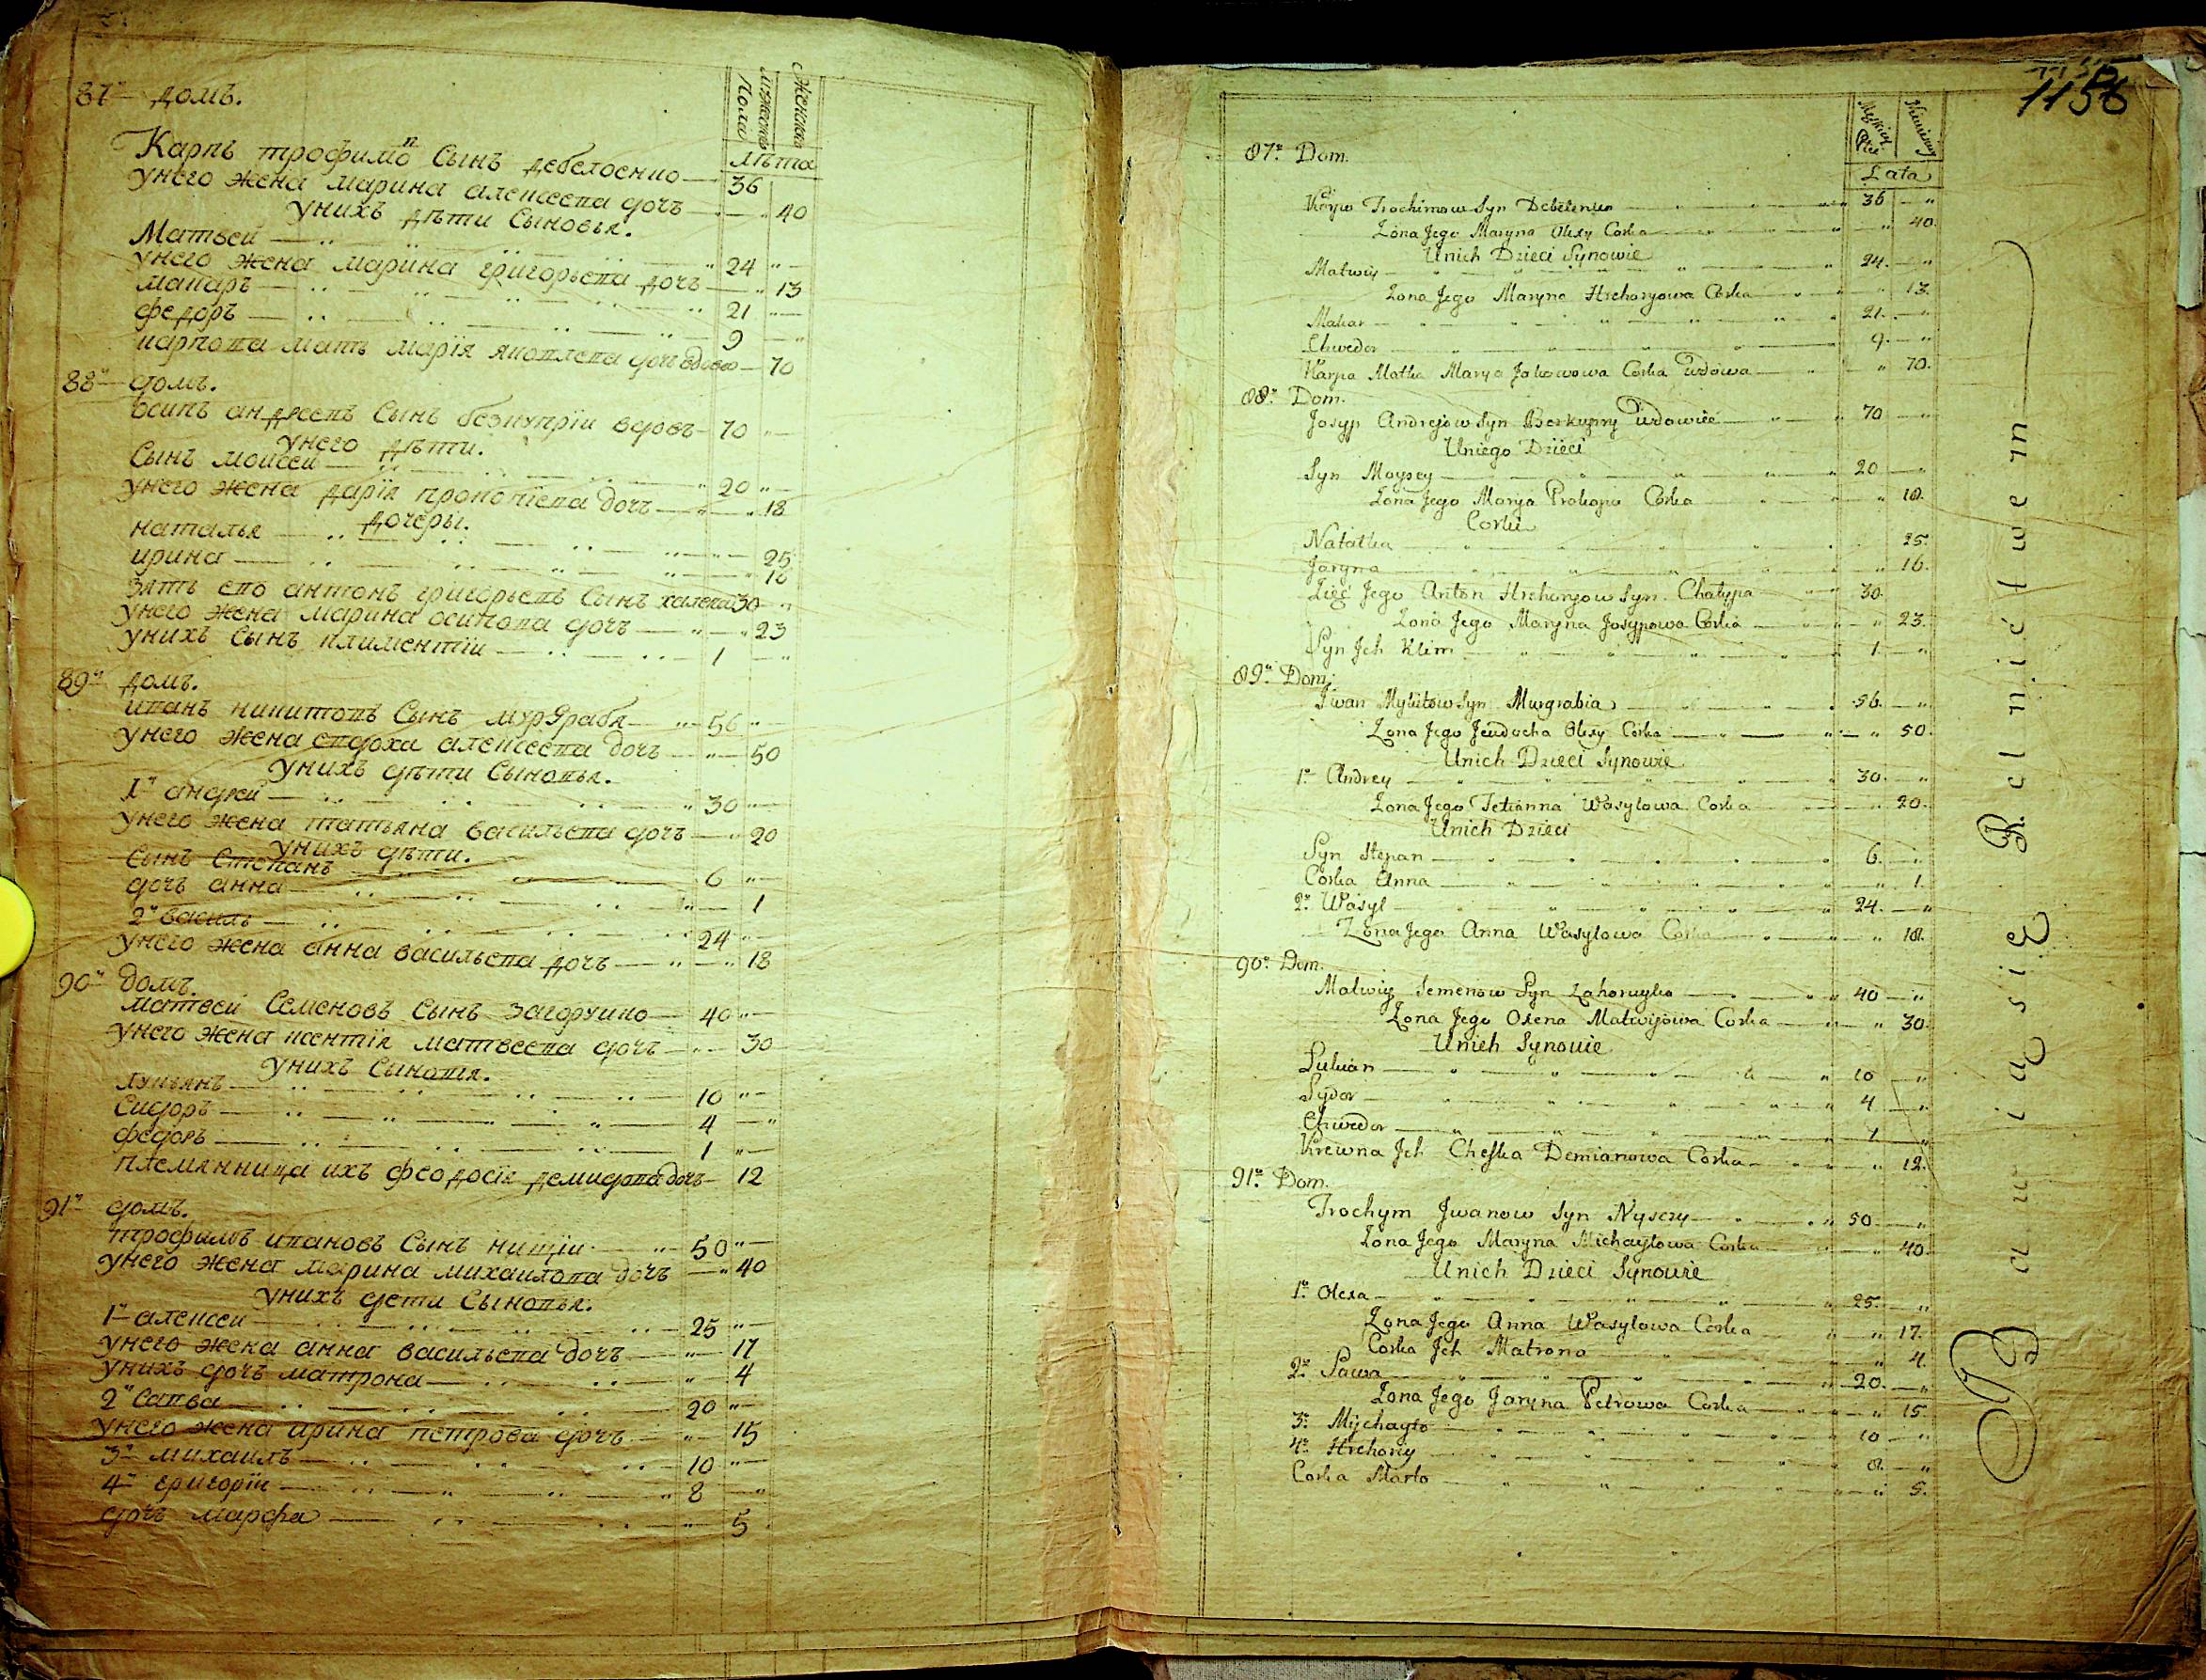 87° домъ.
Мужеска Пола Женска
лѣта
Карпъ трофимоп Сынъ дебелоенко 36
унего жена марина алексеева дочь 40
унихъ дѣти Сыновья.
Матвей 24
унего жена марина григорьева дочь 13
макаръ 21
федоръ 9
карпова мать марія яковлева дочь вдова 70
88° домъ.
осипъ андреевъ Сынъ безкупрїи вдовъ 70
унего дѣти.
Сынъ моисеи 20
унего жена дарїя прокопїева дочь 18
дочери.
наталья 25
ирина 16
зять его антонъ григорьевъ Сынъ халепа 30
унего жена марина осипова дочь 23
унихъ Сынъ климентїи 1
89° домъ.
иванъ никитовъ Сынъ мурграбя 56
унего жена евдоха алексеева дочь 50
унихъ дѣти Сыновья.
1° андреи 30
унего жена татьяна васильева дочь 20
унихъ дѣти.
Сынъ Степанъ 6
дочь анна 1
2° василь 24
унего жена анна васильева дочь 18
90° домъ.
матвеи Семеновъ Сынъ загоруико 40
унего жена ксентїя матвеева дочь 30
унихъ Сыновья.
лукьянъ 10
Сидоръ 4
федоръ 1
племянница ихъ феодосїя демидова дочь 12
91° домъ.
трофимъ ивановъ Сынъ нищїи 50
унего жена марина михаилова дочь 40
унихъ дети Сыновья.
1° алексеи 25
унего жена анна васильева дочь 17
унихъ дочь матрона 4
2° Савва 20
унего жена ирина петрова дочь 15
3° михаилъ 10
4° григорїи 8
дочь марфа 5
1156
87° Dom.
Męzkiey Płci Żeńskiey
Lata
Karpo Trochimow Syn Debelenko 36
Żona Jego Maryna Olexy Corka 40.
Unich Dzieci Synowie
Matwiy 24.
Żona Jego Maryna Hrehoryowa Corka 13.
Makar 21.
Chwedor 9.
Karpa Matka Marya Jakowowa Corka Wdowa 70.
88° Dom.
Josyp Andrejow Syn Bezkupny Wdowiec 70
Uniego Dzieci
Syn Moysey 20
Żona Jego Marya Prokopa Corka 18.
Corki
Natalka 25.
Jaryna 16.
Zięć Jego Anton Hrehoryow Syn Chałypa 30.
Żona Jego Maryna Josypowa Corka 23.
Syn Jch Klim 1.
89° Dom.
Jwan Mykitow Syn Murgrabia 56.
Żona Jego Jewdocha Olexy Corka 50.
Unich Dzieci Synowie
1° Andrey 30.
Żona Jego Tetianna Wasylowa Corka 20.
Unich Dzieci
Syn Stepan 6.
Corka Anna 1.
2° Wasyl 24.
Żona Jego Anna Wasylowa Corka 18.
90° Dom.
Matwiy Semenow Syn Zahoruyko 40
Żona Jego Oxena Matwijowa Corka 30.
Unich Synowie
Lukian 10
Sydor 4
Chwedor 1
Krewna Jch Cheska Demianowa Corka 12.
91° Dom.
Trochym Jwanow Syn Nyszczy 50
Żona Jego Maryna Michayłowa Corka 40.
Unich Dzieci Synowie
1° Olexa 25.
Żona Jego Anna Wasylowa Corka 17.
Corka Jch Matrona 4.
2° Sawa 20.
Żona Jego Jaryna Petrowa Corka 15.
3° Mychayło 10
4° Hrehory 8.
Corka Marta 5.
Bawiąsię Rolnictwem